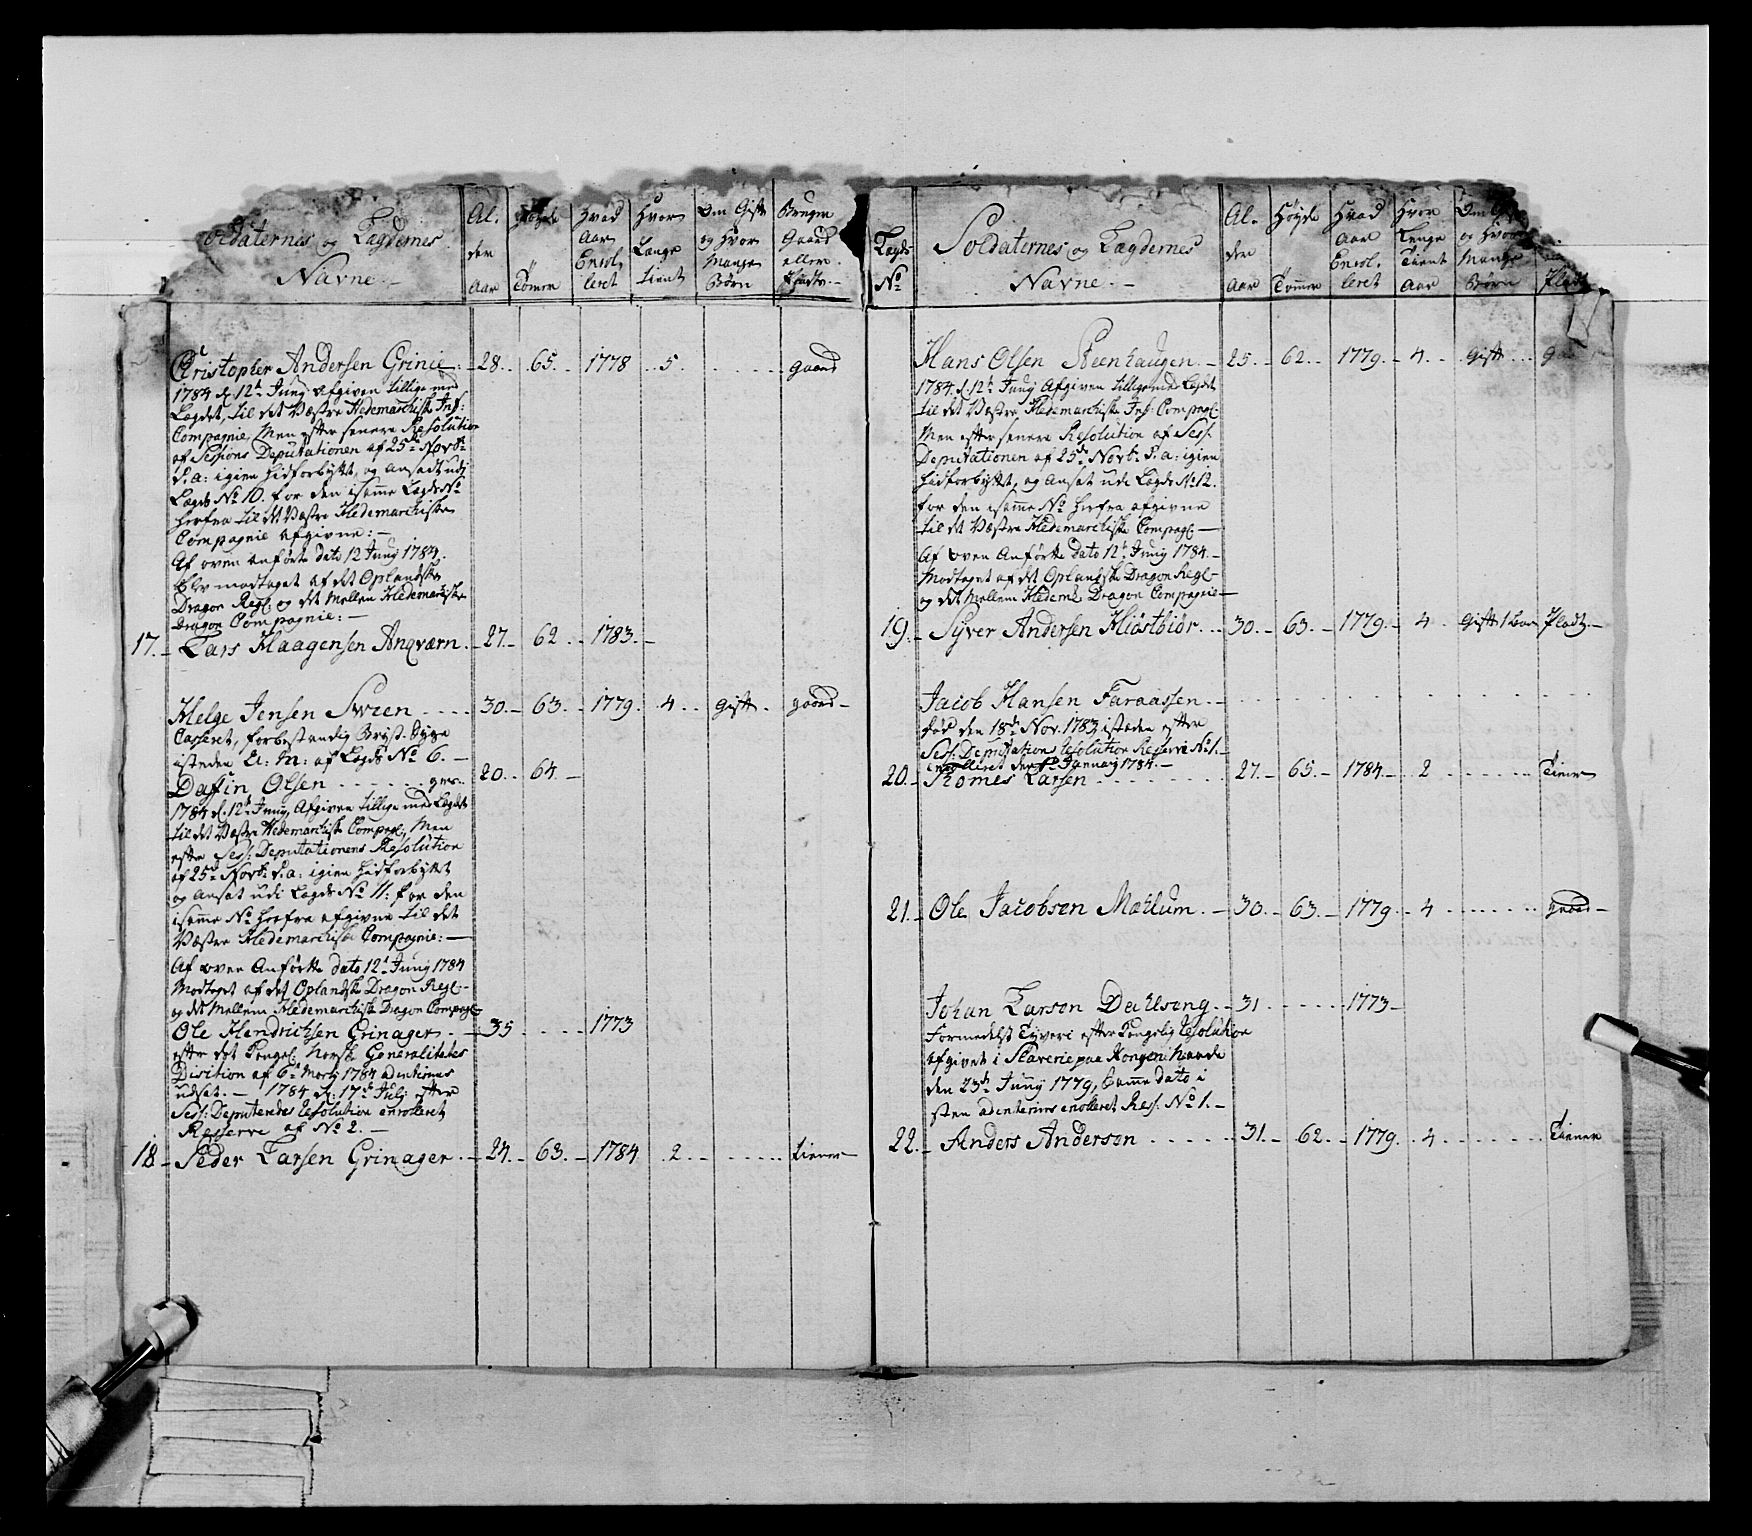 Soldaternes og Lægdernes
Navne.
Al-
der
Aar
Høyde
Tomer
Hvad
Aar
Enrol-
leret
Hvor
Længe
tient
Om Gift
og Hvor
Mange
Børn
Bruger
Gaard
eller
Pladtz
Christopher Andersen Grinie 28. 65. 1778 5 gaard
1784 d. 12te Junij afgiven tillige med
Lægdet, til det Væstre Hedemarchiske Inf:
Compagnie, Men efter senere Resolution
af Sessions Deputationen af 25de Novbr
s. a: igien hidforbyttet, og ansadt udj
Lægds No 10. for den isamme Lægds No
herfra til det Væstre Hedemarchiske
Compagnie afgivne:
Af oven anførte dato 12 Junij 1784
Blev modtaget af det Oplandske
Dragon Regt. og det Mellem Hedemarchiske
Dragon Compagnie:
17. Lars Haagensen Anqværn. 27. 62. 1783.
Helge Jensen Sween 30. 63. 1779. 4. Gift. gaard
Casseret, for bestendig Bryst-Syge
isteden A: M: af Lægds No 6.
Daffin Olsen ger. 20. 64.
1784 d. 12te Junij, Afgiven tillige med Lægdet
til det Væstre Hedemarchiske Compagt, Men
efter Sess: Deputationens Resolution
af 25de Novbr. s. a: igien hidforbyttet
og Ansat udi Lægds No 11: for den
isamme No herfra afgivne til det
Væstre Hedemarchiske Compagnie:
Af oven Anførte dato 12te Junij 1784
Modtaget af det Oplandske Dragon Regt.
og det Mellem Hedemarchiske Dragon Compagt
Ole Hendrichsen Grinager 35 1773
efter det Kongel. Norske Generalitetes
Disition af 6te Martj 1784 adentirims
udsat. 1784 d. 17de Julj efter
Sess: Deputeredes Resolution enrolleret
Reserve af No 2.
18 Peder Larsen Grinager 24. 63. 1784 2. tiener
Lægds
No
Soldaternes og Lægdernes
Navne.
Al-
der
Aar
Høyde
Tommer
Hvad
Aar
Enrol-
leret
Hvor
Lenge
Tient
Aar
Om
og Hvor
Mange
Børn
Pladtz
Hans Olsen Steenhaugen. 25. 62. 1779. 4. Gift
1784 d. 12te Junij Afgiven tilligemed Lægdet
til det Væstre Hedemarchiske Inf: Compagt:
Men efter senere Resolution af Sess.
Deputationen af 25de Novbr. s. a: igien
hidforbyttet, og Ansat udi Lægds No 12.
for den isamme No herfra afgivne
til det Væstre Hedemarchiske Compagt
Af oven Anførte dato 12te Junij 1784.
Modtaget af det Oplandske Dragon Regt.
og det Mellem Hedem: Dragon Compagnie
19. Syver Andersen Hiøstbiør 30. 63. 1779. 4. Gift 1 barn Pladtz.
Jacob Hansen Faraassen.
død den 18de Nov. 1783, isteden efter
Sess: Deputations Resolution Reserve No 1.
enrolleret den Januarij 1784.
20. Tomes Larsen 27. 65. 1784. 2 Tiener
21. Ole Jacobsen Mæhlum. 30. 63. 1779. 4 gaard
Johan Larsen Dechlseng. 31. 1773
Formedelst Tyveri efter Kongelig Resolution
afgivet i Slaverie paa Kongens Naade
den 23de Junij 1779, samme dato i
sten adenterims enolleret Res. No 1.
22. Anders Andersen 31. 62. 1779. 4 Tiener